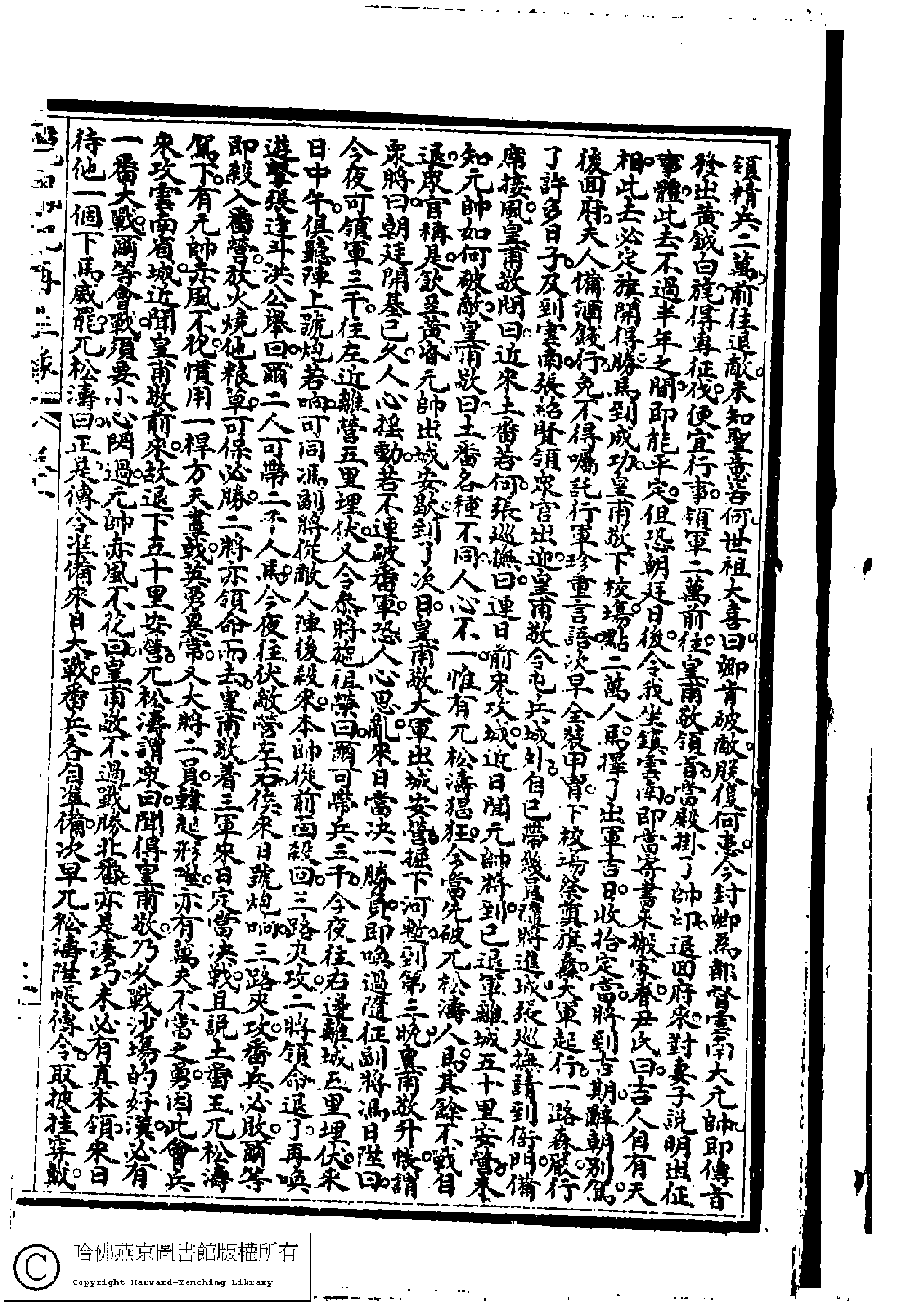 領精兵二萬前往退敵未知聖意若何世祖大喜曰卿肯破敵朕復何患今封卿為都督雲南大元帥即傳旨
發出黃鉞白旄得專征伐便宜行事領軍二萬前往皇甫敬領旨當殿掛了帥印退回府來對妻子說明出征
事體此去不過半年之間即能平定但恐朝廷日後令我坐鎮雲南即當寄書來搬家眷尹氏曰吉人自有天
相此去必定旗開得勝馬到成功皇甫敬下校場點二萬人馬擇了出軍吉日收拾定當將到吉期辭朝別駕
後回府夫人備酒餞行免不得囑託行軍珍重言語次早全裝甲冑下校場祭奠旗纛大軍起行一路森嚴行
了許多日子及到雲南張紹賢領眾官出迎皇甫敬令屯兵城外自己帶幾員裨將進城張巡撫請到衙門備
席接風皇甫敬問曰近來土番若何張巡撫曰連日前來攻城近日聞元帥將到已退軍離城五十里安營未
知元帥如何破敵皇甫敬曰土番名種不同人心不一惟有兀松濤猖狂今當先破兀松濤人馬其餘不戰自
退眾官稱是飲至黃昏元帥出城安歇到了次日皇甫敬大軍出城安營掘下河塹到第二晚皇甫敬升帳謂
眾將曰朝廷開基已久人心搖動若不速破番軍恐人心思亂來日當決一勝負即喚過隨征副將馮日陞曰
今夜可領軍三千往左近離營五里埋伏又令叅將施祖榮曰爾可帶兵三千今夜往右邊離城五里埋伏來
日中午俱聽陣上號炮若响可同馮副將從敵人陣後殺來本帥從前面殺回三路夾攻二將領命退了再喚
遊擊張達斗洪公舉曰爾二人可帶二千人馬今夜往伏敵營左右俟來日號炮响三路夾攻番兵必敗爾等
即殺入番營放火燒他粮草可保必勝二將亦領命而去皇甫敬着三軍來日定當決戰且說土番王兀松濤
駕下有元帥赤風不花慣用一桿方天畫戟英勇異常又大將二員韓起彤哩亦有萬夫不當之勇因此會兵
來攻雲南省城近聞皇甫敬前來故退下五十里安營兀松濤謂眾曰聞得皇甫敬乃久戰沙場的好漢必有
一番大戰爾等會戰須要小心閃過元帥赤風不花曰皇甫敬不過戰勝北番亦是湊巧未必有真本領來日
待他一個下馬威罷兀松濤曰正是傳令準備來日大戰番兵各自準備次早兀松濤陞帳傳令取披挂穿戴
哈佛燕京圖書館版權所有
Copyright Harvard-Yenching Library